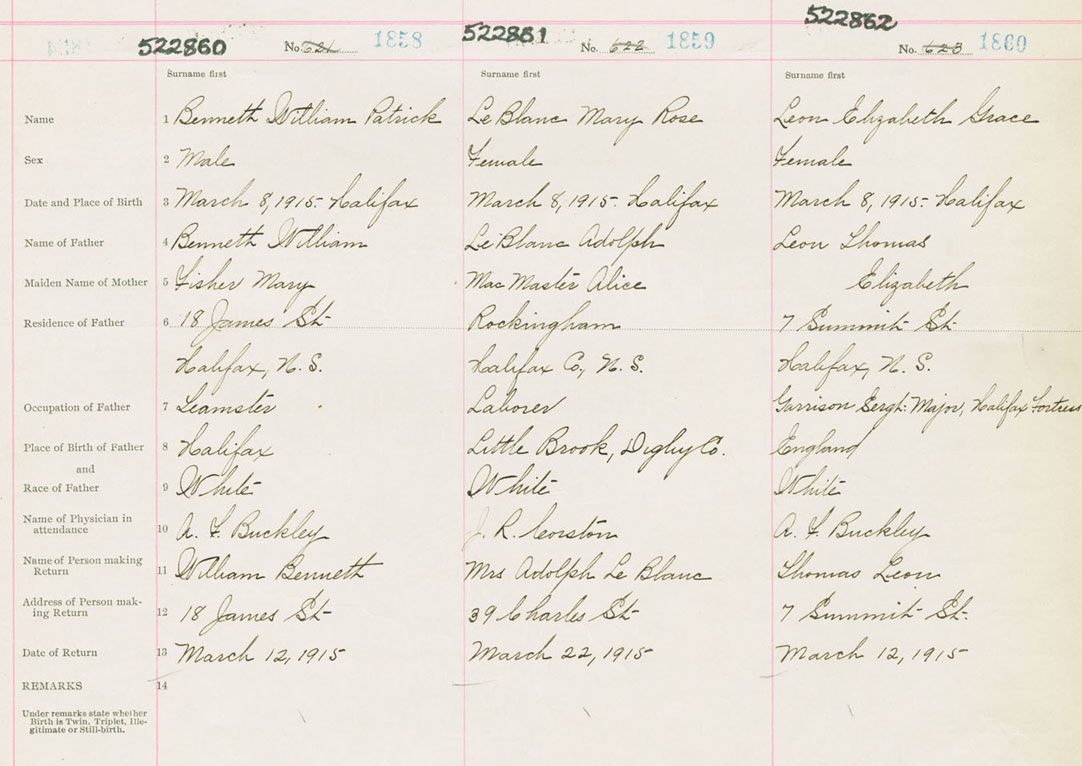 522860 No. 621 1858 522861 No. 622 1859 522862 No. 623 1860
Surname first Surname first Surname first
Name 1 Bennett William Patrick LeBlanc Mary Rose Leon Elizabeth Grace
Sex 2 Male Female Female
Date and Place of Birth 3 March 8, 1915 - Halifax March 8, 1915 - Halifax March 8, 1915 - Halifax
Name of Father 4 Bennett William LeBlanc Adolph Leon Thomas
Maiden Name of Mother 5 Fisher Mary MacMaster Alice Elizabeth
Residence of Father 6 18 James St. Rockingham 7 Summit St.
Halifax, N.S. Halifax Co, N.S. Halifax, N.S.
Occupation of Father 7 Teamster Laborer Garrison Sergt. Major, Halifax Fortress
Place of Birth of Father 8 Halifax Little Brook, Digby Co. England
and
Race of Father 9 White White White
Name of Physician in
attendance 10 A. F. Buckley J. R. Corston A. F. Buckley
Name of Person making
Return 11 William Bennett Mrs Adolph Le Blanc Thomas Leon
Address of Person mak-
ing Return 12 18 James St 39 Charles St 7 Summit St.
Date of Return 13 March 12, 1915 March 22, 1915 March 12, 1915
REMARKS 14
Under remarks state whether
Birth is Twin, Triplet, Ille-
gitimate or Still-birth.